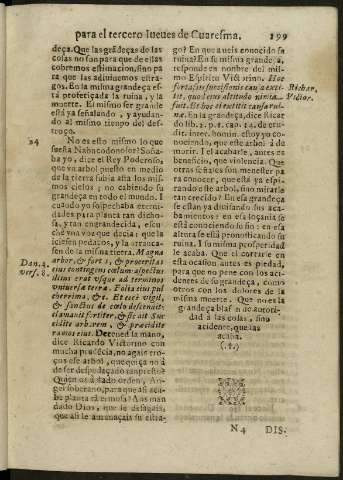 para el tercero Iueues de Cuaresma. 199
deça. Que las grãdeças de las
cosas no son para que de ellas
cobremos estimacion, sino pa
ra que las adiuinemos estra-
gos. En la misma grandeça es
tà profetiçada la ruina, y la
muerte. El mismo ser grande
està ya señalando , y ayudan-
do al mismo tiempo del des-
troço.
24 No es esto mismo lo que
sueña Nabucodonosor? Soña-
ba yo, dice el Rey Poderoso,
que vn arbol puesto en medio
de la tierra subia asta los mis-
mos cielos ; no cabiendo su
grandeça en todo el mundo. I
cuando yo sospechaba eterni-
dades para planta tan dicho-
sa, y tan engrandecida, escu-
chè vna voz que decia: que la
iciesen pedaços, y la arrancа-
sen de la misma tierra. Magna
Dan. 4. arbor, & fort s, & proceritas
vers. 8. eius contingens cœlum aspectus
illius erat vsque ad terminos
vniuersæ terra. Folia eius pul
cherrima, &c. Et ecce vigil,
& sanctus de cœlo descendit:
clamauit fortiter, & sic ait Suc
cidite arborem , & præcidite
ramos eius. Detened la mano,
dice Ricardo Victorino con
mucha prudẽcia, no agais tro-
ços ese arbol, que quiçà no à
de ser despedaçado tan presto?
Quien os à dado orden, An-
gel soberano, para que asi aca-
be planta tã ermosa? A os man
dado Dios, que le desagais,
que asi le amenaçais su estra-
go? En que aueis conocido su
ruina? En su misma grandeça,
responde en nombre del mis-
mo Espiritu Victorino. Hoc
Richar. fortasse succissionis causa exti-
Victor. tit, quod eius altitudo nimia
fuit. Et hoc ei extitit causa rui-
næ. En la grandeça, dice Ricar
do lib. 2. p. 1. cap. 12. de eru-
dit. inter. homin. estoy yo co-
nociendo, que este arbol à de
morir. Tel acabarle, antes es
beneficio, que violencia. Que
otras señales son menester pa-
ra conocer, que està ya espi-
rando este arbol, sino mirarle
tan crecido? En esa grandeça
se està ya anunciando sus des-
trosos: en esa loçania se
està conociendo su fin: en esa
estatura se està pronosticando su
ruina. I su misma prosperidad
le acaba. Que el cortarle en
esta ocasion antes es piedad,
para que no pene con los aci-
dentes de su grandeça, como
otros con los dolores de la
misma muerte. Que no es la
grandeça blason de autori-
dad à las cosas, sino
acidente, que las
acaba.
(.§.)
N 4 DIS-